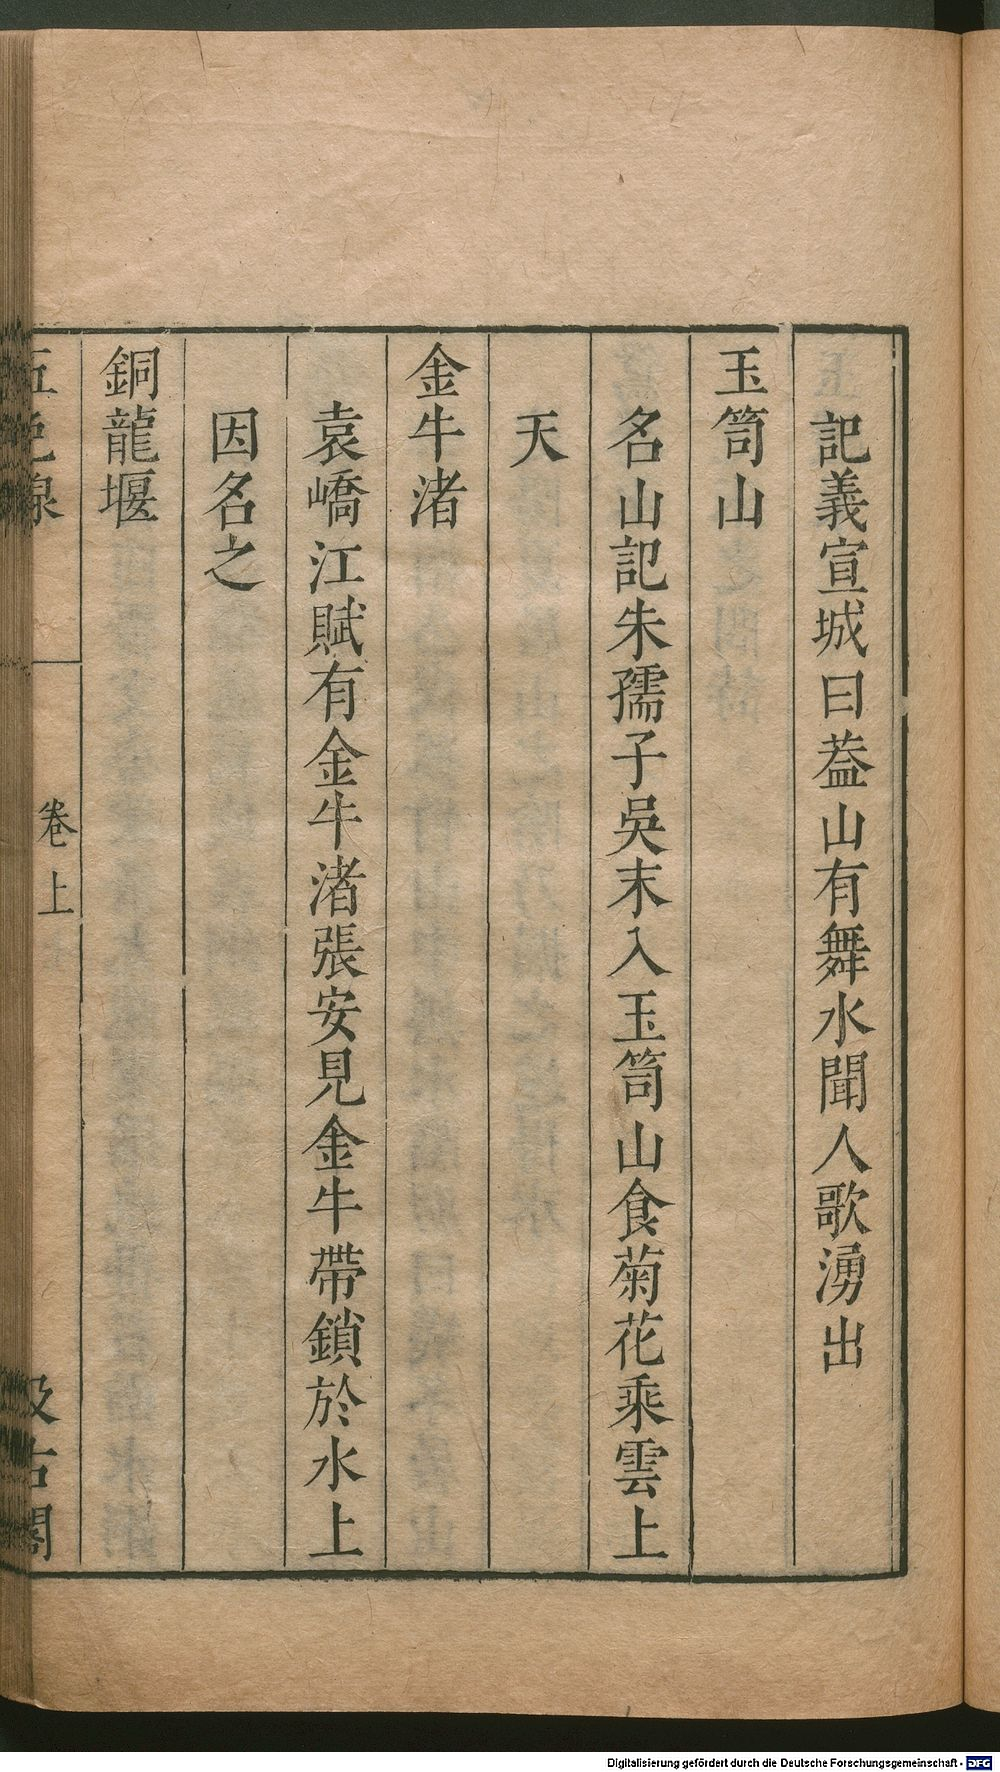 記義宣城曰葢山有舞水聞人歌湧出
玉笥山
名山記朱孺子吳末入玉笥山食菊花乘雲上
天
金牛渚
袁嶠江賦有金牛渚張安見金牛帶鎖於水上
因名之
銅龍堰
五色線
卷上
汲古閣
Digitalisierung gefördert durch die Deutsche Forschungsgemeinschaft - DFG